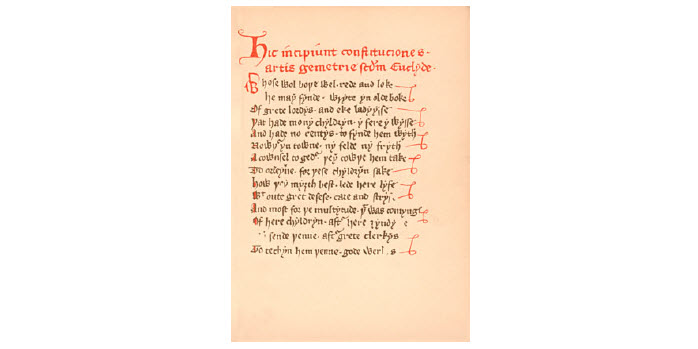 Hic incipiunt constituciones.
artis gemetrie scdm Euclyde.
Whose wol boþe wel rede and loke
he may fynde wryte yn olde boke
Of grete lordys and eke ladyysse
Þat hade mony chyldryn y fere y wysse
And hade no rentys to fynde hem wyth
Nowþr yn towne ny felde ny fryth
A cownsel to gedr þey cowþe hem take
To ordeyne for þese chyldryn sake
how þey myȝth best lede here lyfe
Wt oute gret desese care and stryf
And most for þe multytude þt was comyng
Of here chyldryn aftr here
sende þenne aftr grete clerkys
To techyn hem þenne gode